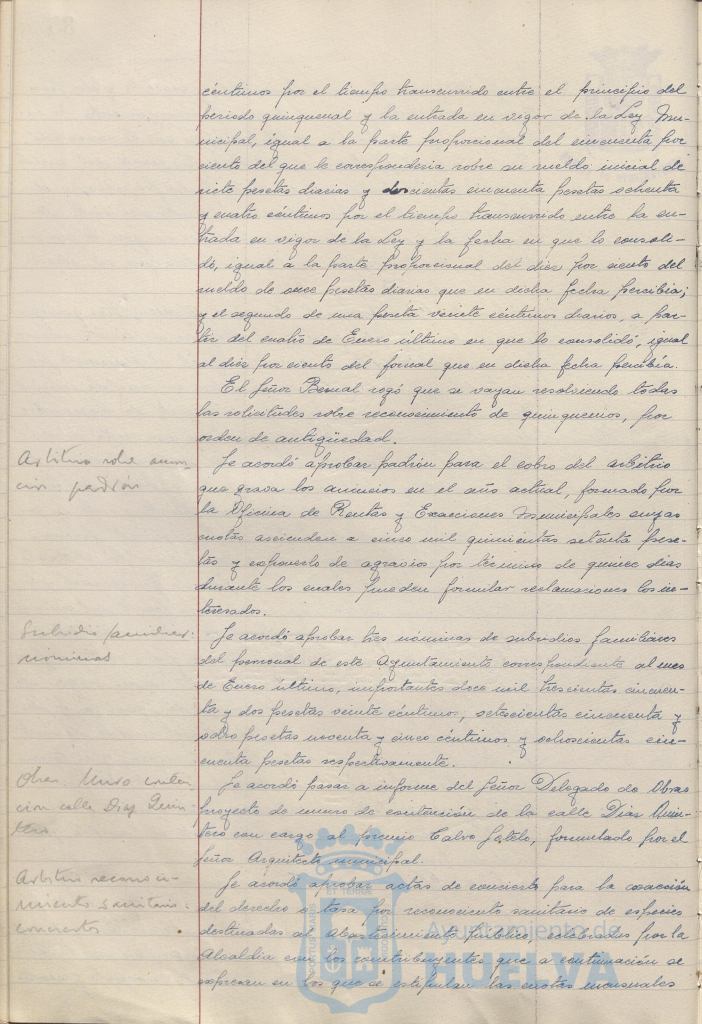 céntimos por el tiempo transcurrido entre el principio del
periodo quinquenal y la entrada en vigor de la Ley Mu-
nicipal, igual a la parte proporcional del cincuenta por
ciento del que le correspondería sobre su sueldo inicial de
siete pesetas diarias y doscientas cincuenta pesetas ochenta
y cuatro céntimos por el tiempo transcurrido entre la en-
trada en vigor de la Ley y la fecha en que lo consoli-
dó, igual a la parte proporcional del diez por ciento del
sueldo de once pesetas diarias que en dicha fecha percibía;
y el segundo de una peseta veinte céntimos diarios, a par-
tir del cuatro de Enero último en que lo consolidó, igual
al diez por ciento del jornal que en dicha fecha percibía.
El Señor Bernal rogó que se vayan resolviendo todas
las solicitudes sobre reconocimiento de quinquenios, por
orden de antigüedad.
Arbitrio sobre anun-
cios padrón
Se acordó aprobar padrón para el cobro del arbitrio
que grava los anuncios en el año actual, formado por
la Oficina de Rentas y Exacciones Municipales cuyas
cuotas ascienden a cinco mil quinientas setenta pese-
tas y exponerlo de agravios por término de quince dias
durante los cuales pueden formular reclamaciones los in-
teresados.
Subsidio familiar:
nóminas
Se acordó aprobar tres nóminas de subsidios familiares
del personal de este Ayuntamiento correspondiente al mes
de Enero último, importantes doce mil trescientas cincuen-
ta y dos pesetas veinte céntimos, setecientas cincuenta y
ocho pesetas noventa y cinco céntimos y ochocientas cin-
cuenta pesetas respectivamente.
Obras Muro conten-
cion calle Diaz Quin-
tero
Se acordó pasar a informe del Señor Delegado de Obras
proyecto de muro de contención de la calle Diaz Quin-
tero con cargo al premio Calvo Sotelo, formulado por el
Señor Arquitecto municipal.
Arbitrio reconoci-
miento sanitario
conciertos
Se acordó aprobar actas de concierto para la exacción
del derecho o tasa por reconocimiento sanitario de especies
destinadas al abastecimiento público, celebrados por la
Alcaldía con los contribuyentes que a continuación se
expresan en los que se estipulan las cuotas mensuales
Ayuntamiento de
HUELVA